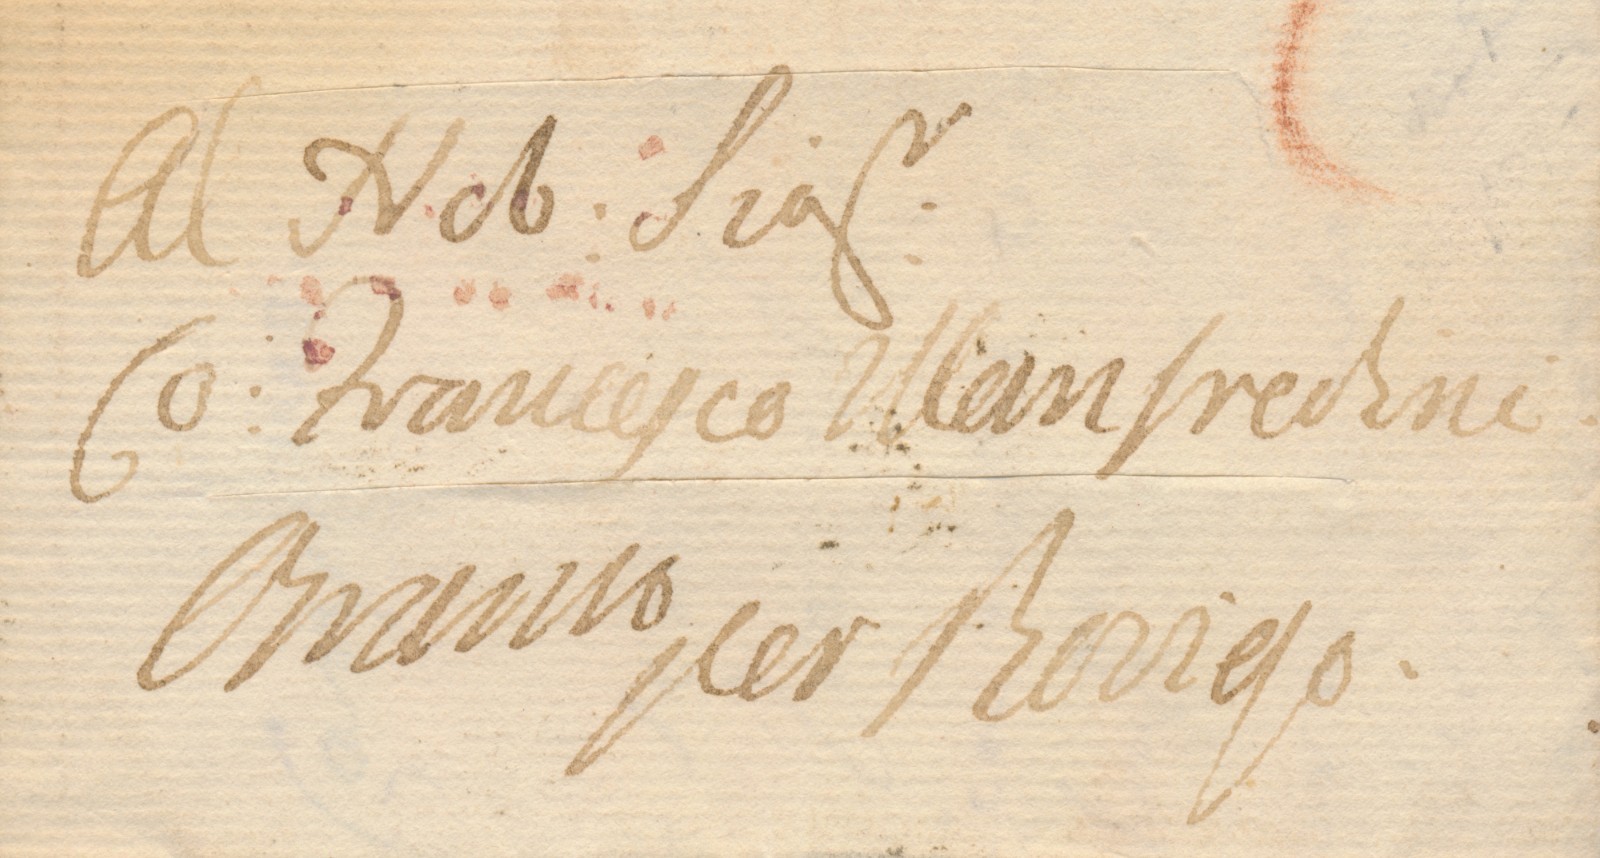 Al Nob: Sigr.
Co: Francesco Manfredini.
per Rovigo.